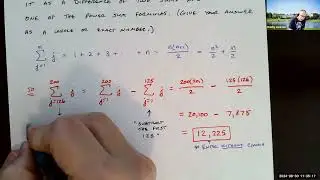 IT AS A DIFFERENCE OF TWO SUMS AND
ONE OF THE POWER SUM FORMULAS. (GIVE YOUR ANSWER
AS A WHOLE OR EXACT NUMBER.)
∑ j = 1 + 2 + 3 + ... + n = n(n+1)/2 = n²/2 + n/2
j=1
SO ∑ (j=126 to 200) j = ∑ (j=1 to 200) j − ∑ (j=1 to 125) j = 200(201)/2 − 125(126)/2
"SUBTRACT THE FIRST 125" = 20,100 − 7,875
= 12,225
* ENTER WITHOUT COMMA